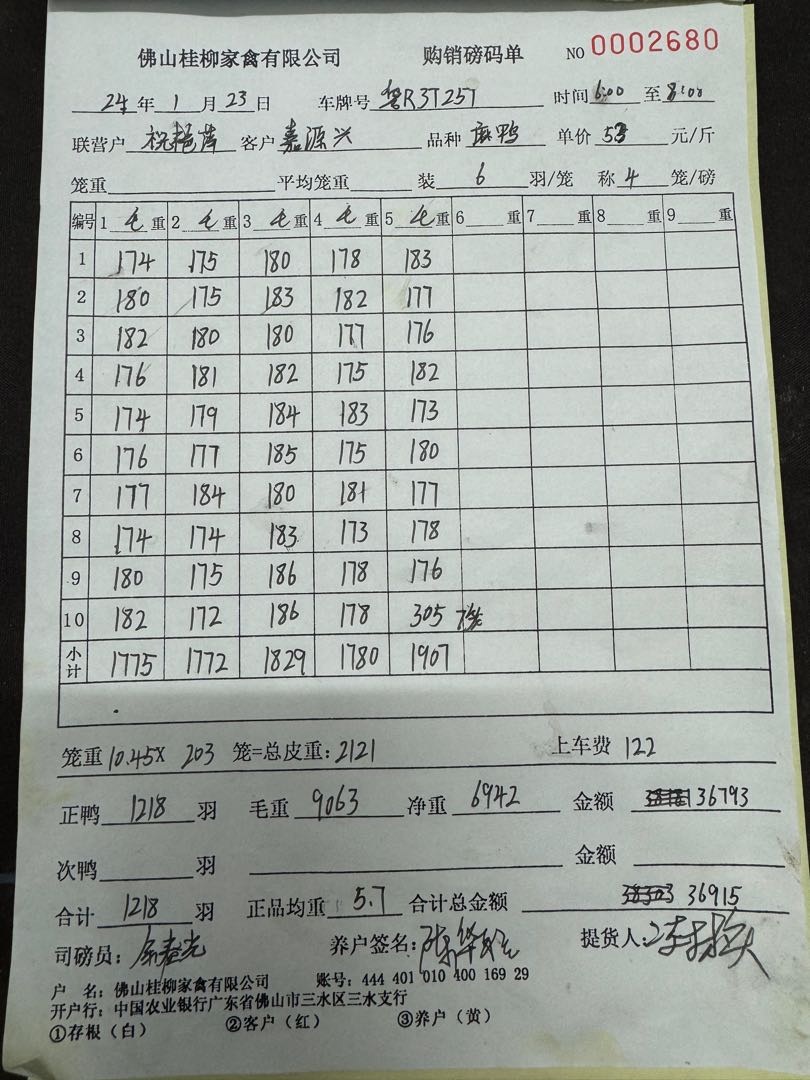 佛山桂柳家禽有限公司 购销磅码单 NO 0002680
24 年 1 月 23 日 车牌号 R3T25T 时间 6:00 至 8:00
联营户 客户 嘉源兴 品种 麻鸭 单价 53 元/斤
笼重 平均笼重 装 6 羽/笼 称 4 笼/磅
编号 1 毛 重 2 毛 重 3 毛 重 4 毛 重 5 毛 重 6 重 7 重 8 重 9 重
1 174 175 180 178 183
2 180 175 183 182 177
3 182 180 180 177 176
4 176 181 182 175 182
5 174 179 184 183 173
6 176 177 185 175 180
7 177 184 180 181 177
8 174 174 183 173 178
9 180 175 186 178 176
10 182 172 186 178 305 7笼
小计 1775 1772 1829 1780 1907
笼重 10.45X 203 笼=总皮重: 2121 上车费 122
正鸭 1218 羽 毛重 9063 净重 6942 金额 36793
次鸭 羽 金额
合计 1218 羽 正品均重 5.7 合计总金额 36915
司磅员: 养户签名: 提货人:
户 名: 佛山桂柳家禽有限公司 账号: 444 401 010 400 169 29
开户行: 中国农业银行广东省佛山市三水区三水支行
①存根(白) ②客户(红) ③养户(黄)